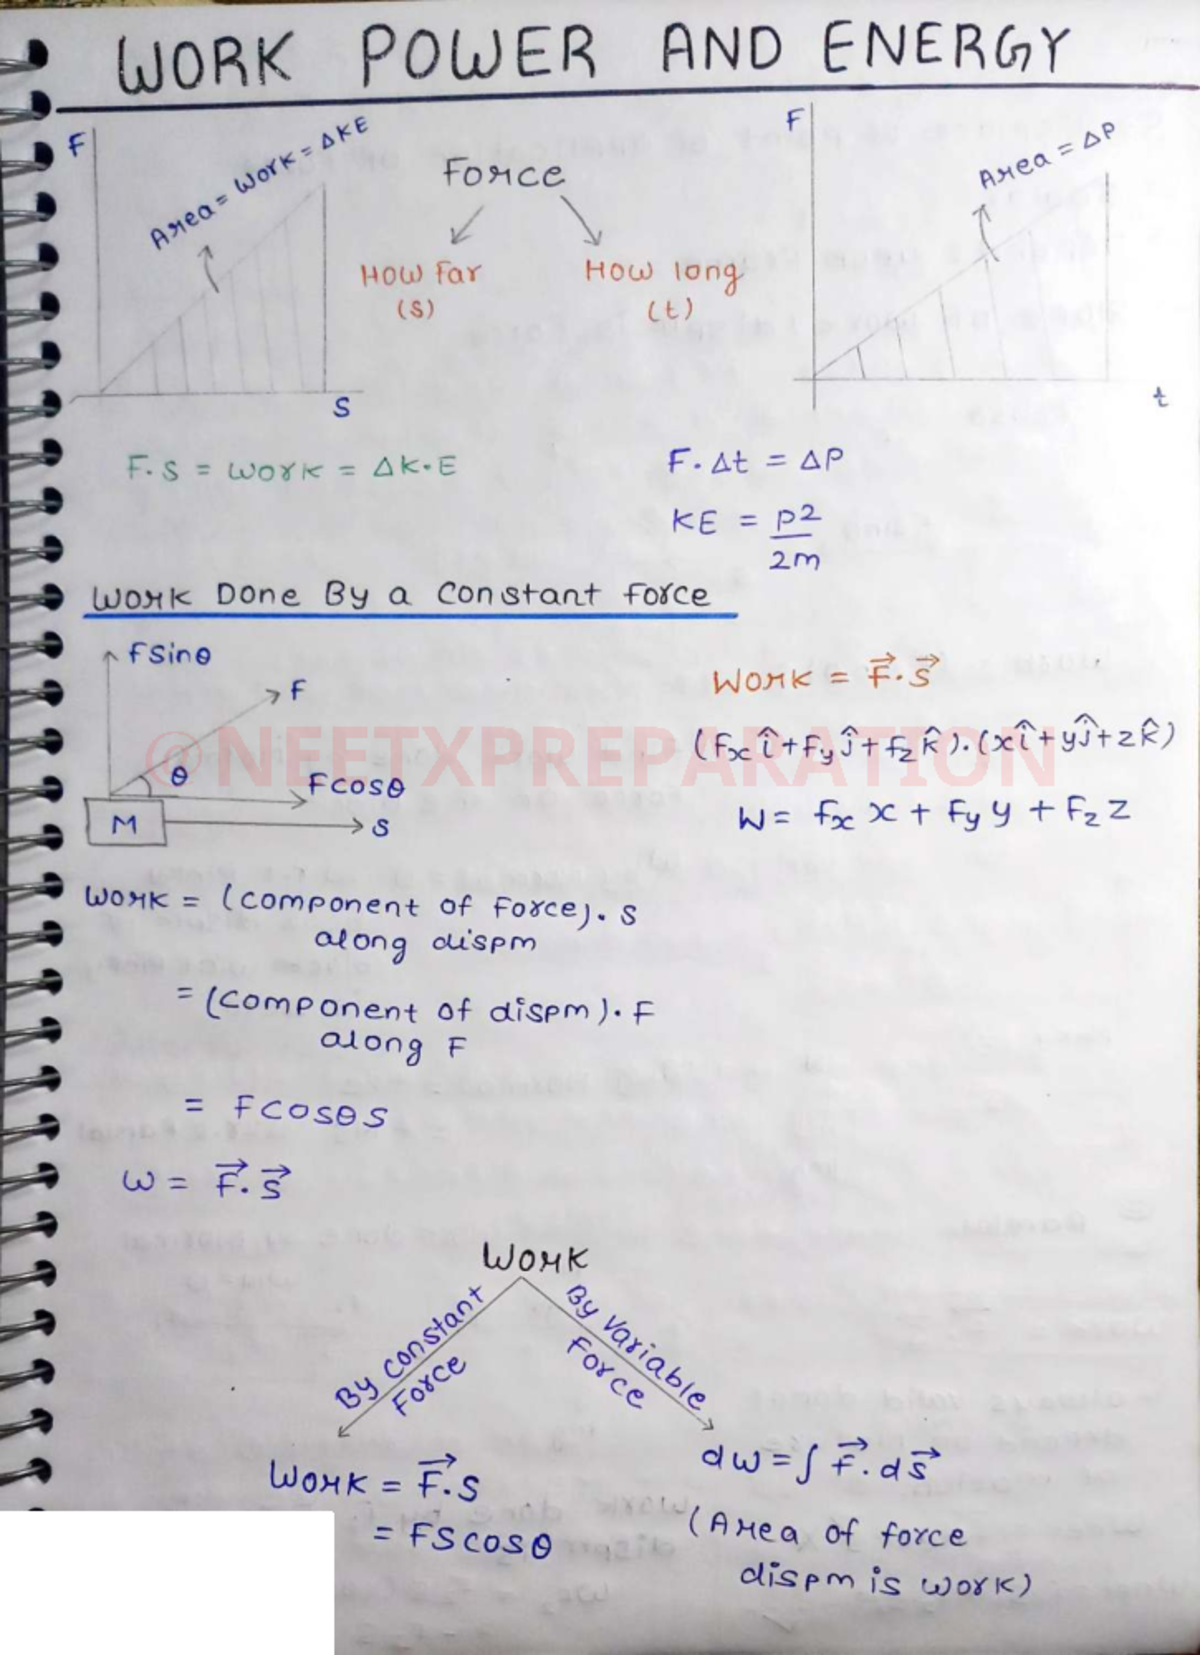 WORK POWER AND ENERGY
F
Area = Work = ΔKE
S
Force
How Far
(S)
How long
(t)
F
Area = ΔP
t
F.S = Work = ΔK.E
F.Δt = ΔP
KE = p2
2m
Work Done By a Constant force
fSinθ
F
θ
Fcosθ
M
S
Work = F⃗.S⃗
(fx î + fy ĵ + fz k̂).(xî + yĵ + zk̂)
W = fx x + fy y + fz z
@NEETXPREPARATION
Work = (component of Force). S
along dispm
= (component of dispm). F
along F
= Fcosθs
W = F⃗.S⃗
Work
By constant
Force
By Variable
Force
Work = F⃗.S
= FScosθ
dw = ∫ F⃗.dS⃗
(Area of force
dispm is work)